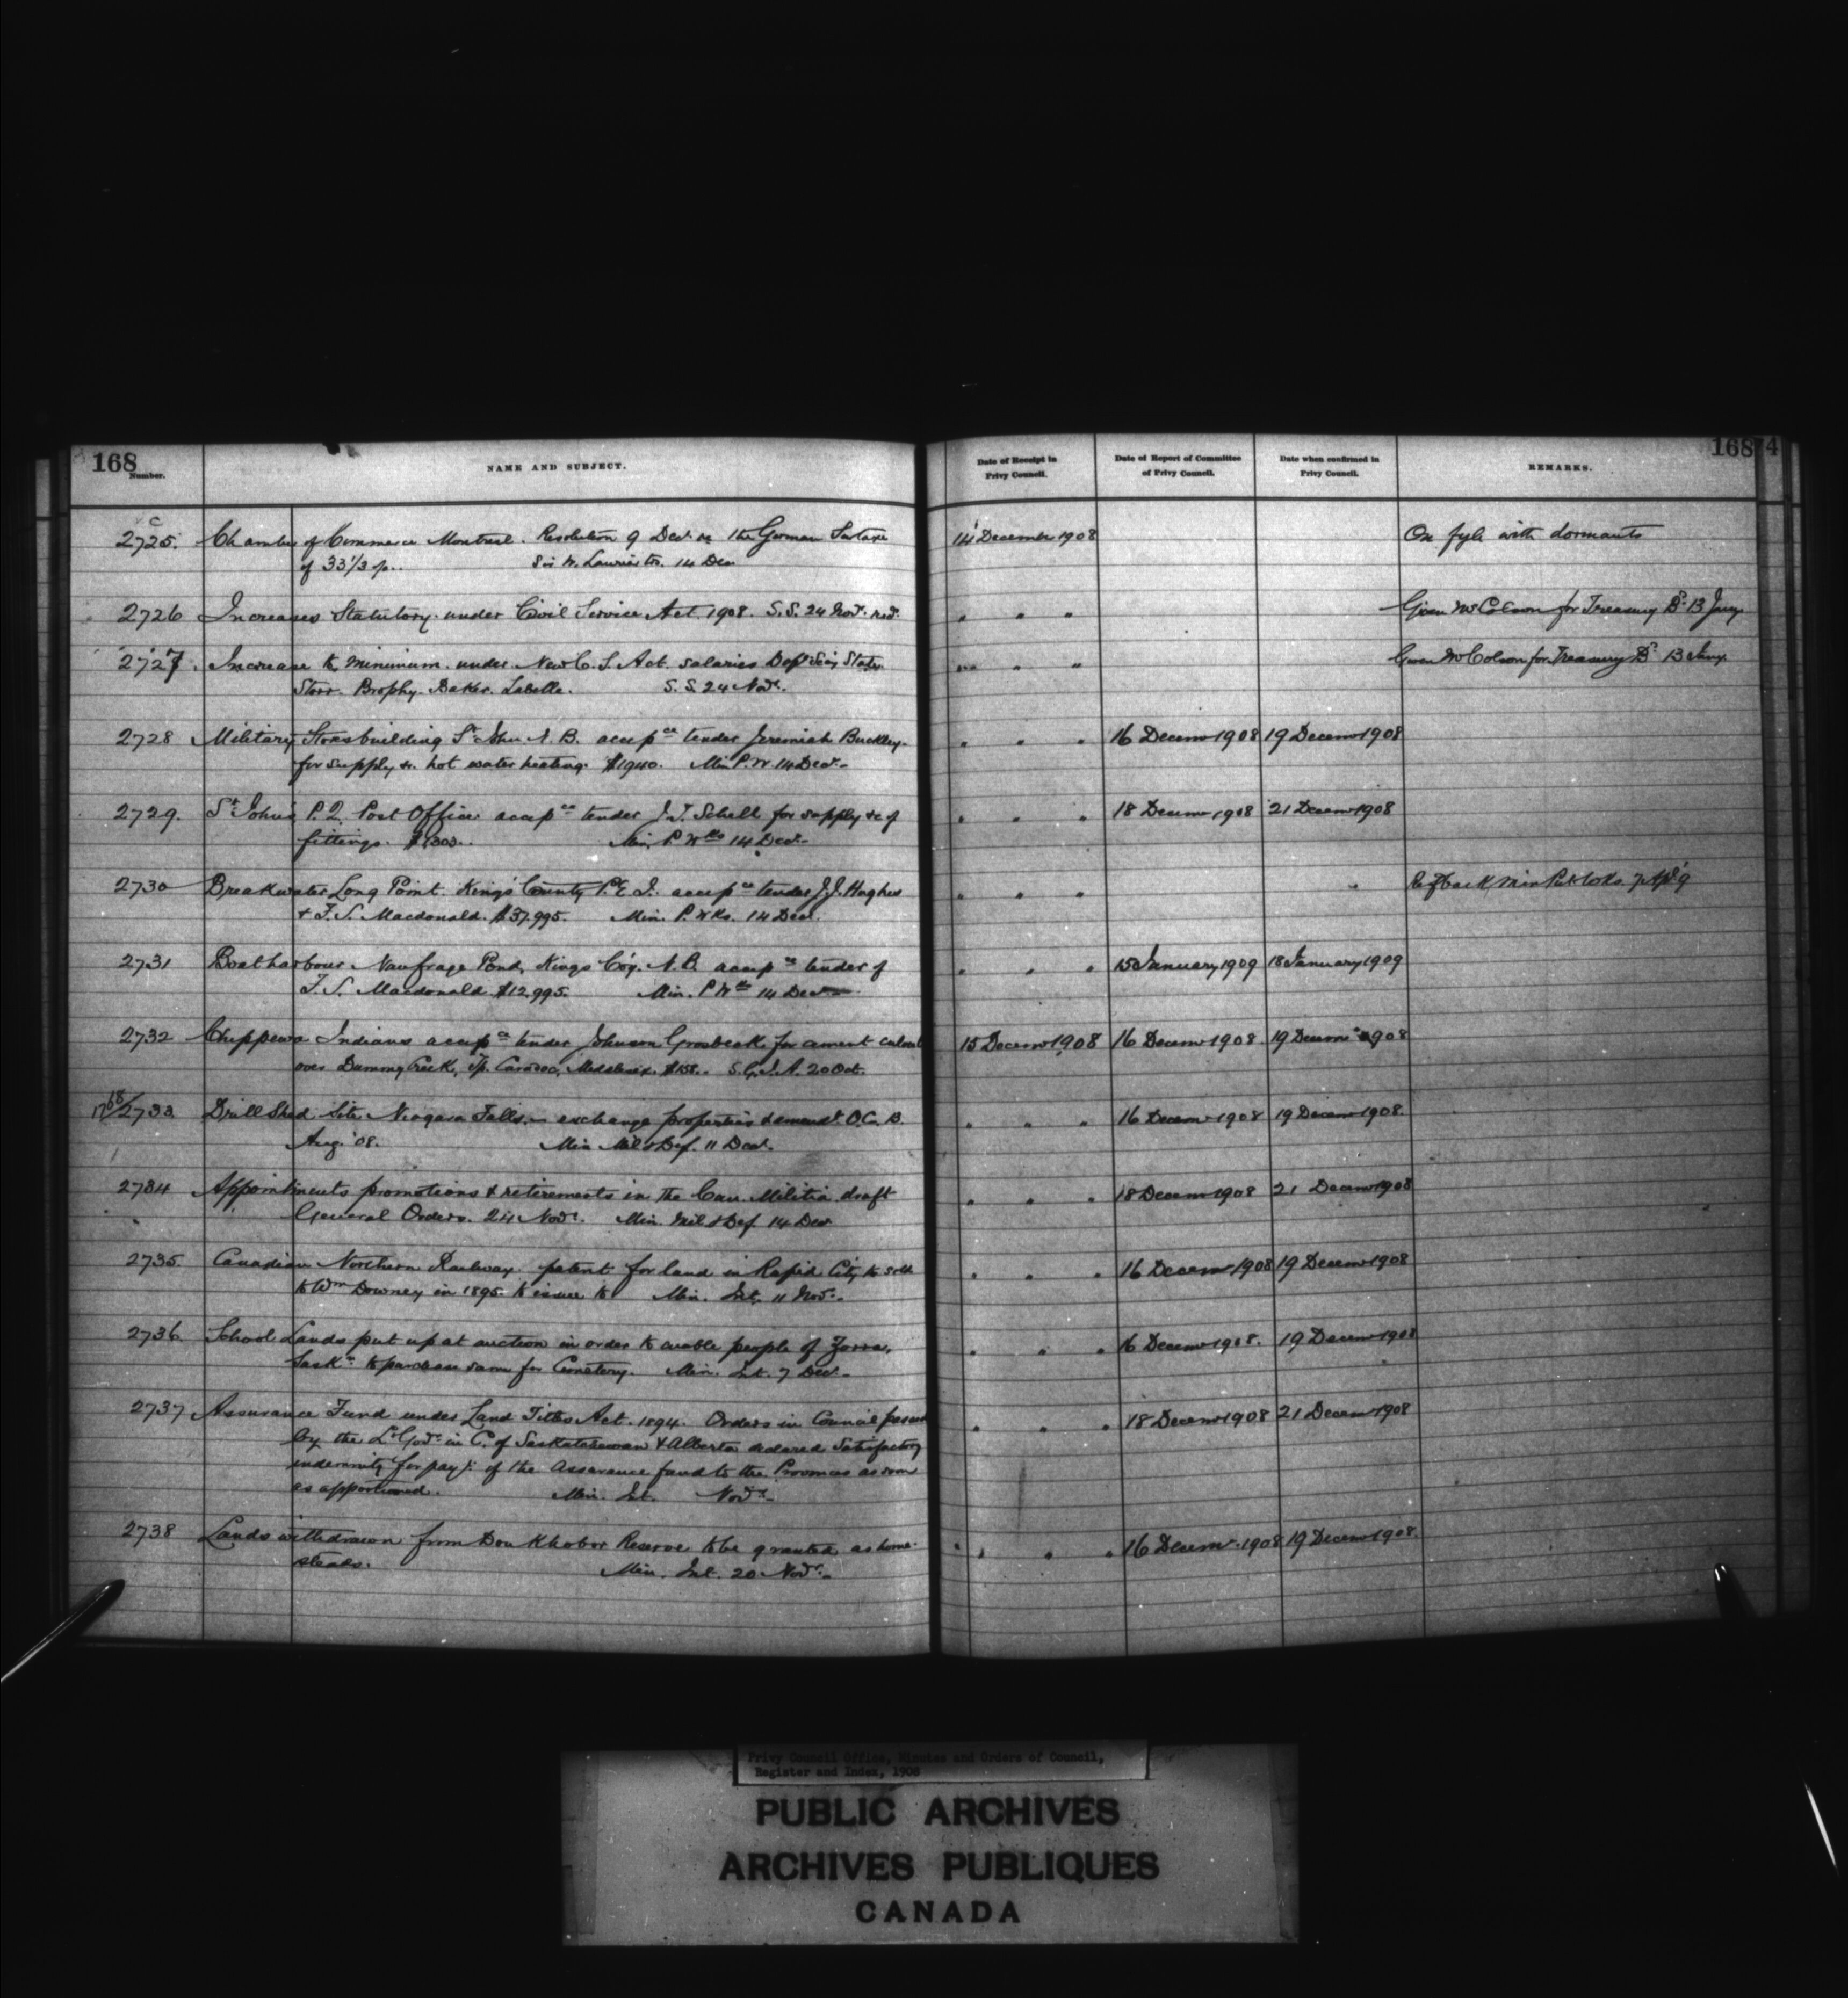 168
Number.
NAME AND SUBJECT.
Date of Receipt in
Privy Council.
Date of Report of Committee
of Privy Council.
Date when confirmed in
Privy Council.
REMARKS.
168
4
2725. Chamber of Commerce Montreal. Resolution 9 Decr. re the German Surtax 14 December 1908 On fyle with dormants
of 33 1/3 p. Sir W. Laurier 14 Dec
2726 Increases Statutory under Civil Service Act 1908. S.S. 24 Novr. " " " Given Mr Colson for Treasury Bd 13 Jany
2727. Increase to minimum under New C.S. Act salaries Dept Secy State " " " Given Mr Colson for Treasury Bd 13 Jany
Storr. Brophy. Baker. Labelle. S.S. 24 Novr.
2728 Military Stores building St John N.B. accepce tender Jeremiah Buckley " " " 16 Decemr 1908 19 Decemr 1908
for supply &c. hot water heating. $1940. Min P.W. 14 Decr.
2729. St John's P.Q. Post Office accepce tender J.T. Schell for supply &c of " " " 18 Decemr 1908 21 Decemr 1908
fittings. Min. P. Wks 14 Decr.
2730 Breakwater Long Point. King's County P.E.I. accepce tender J.J. Hughes " " " " Refd back Min Pub Wks. 7 Apl '9
& F.S. Macdonald. $37,995. Min. P. Wks. 14 Decr.
2731 Boat harbour Naufrage Pond, Kings Coy. N.B. accepce tender of " " " 15 January 1909 18 January 1909
F.S. Macdonald $12,995. Min. P Wks 14 Decr.
2732 Chippewa Indians accepce tender Johnson Grosbeck for cement culvert 15 Decemr 1908 16 Decemr 1908 19 Decemr 1908
over Creek, Tp. Caradoc, Middlesex. $158. S.G.I.A. 20 Oct.
1768/2733 Drill Shed Site Niagara Falls. exchange properties & amendt O.C. 13. " " " 16 Decemr 1908 19 Decemr 1908.
Aug. '08. Min Mil & Def. 11 Decr.
2734 Appointments promotions & retirements in the Can. Militia draft " " " 18 Decemr 1908 21 Decemr 1908
General Orders. 24 Novr. Min. Mil & Def 14 Decr
2735 Canadian Northern Railway patent for land in Rapid City to sold " " " 16 Decemr 1908 19 Decemr 1908
to Wm Downey in 1895 to issue to Min. Int. 11 Novr.
2736. School Lands put up at auction in order to enable people of Zorra, " " " 16 Decemr 1908. 19 Decemr 1908
Saskn to purchase same for Cemetery. Min. Int. 7 Decr.
2737 Assurance Fund under Land Titles Act. 1894. Orders in Council passed " " " 18 Decemr 1908 21 Decemr 1908
by the Lt Govr in C. of Saskatchewan & Alberta declared satisfactory
indemnity for payt of the Assurance fund to the Provinces as soon
as apportioned. Min. Int. Novr.
2738 Lands withdrawn from Doukhobor Reserve to be granted as home- " " " 16 Decemr. 1908 19 Decemr 1908.
steads. Min. Int. 20 Novr.
Privy Council Office, Minutes and Orders of Council,
Register and Index, 1908
PUBLIC ARCHIVES
ARCHIVES PUBLIQUES
CANADA